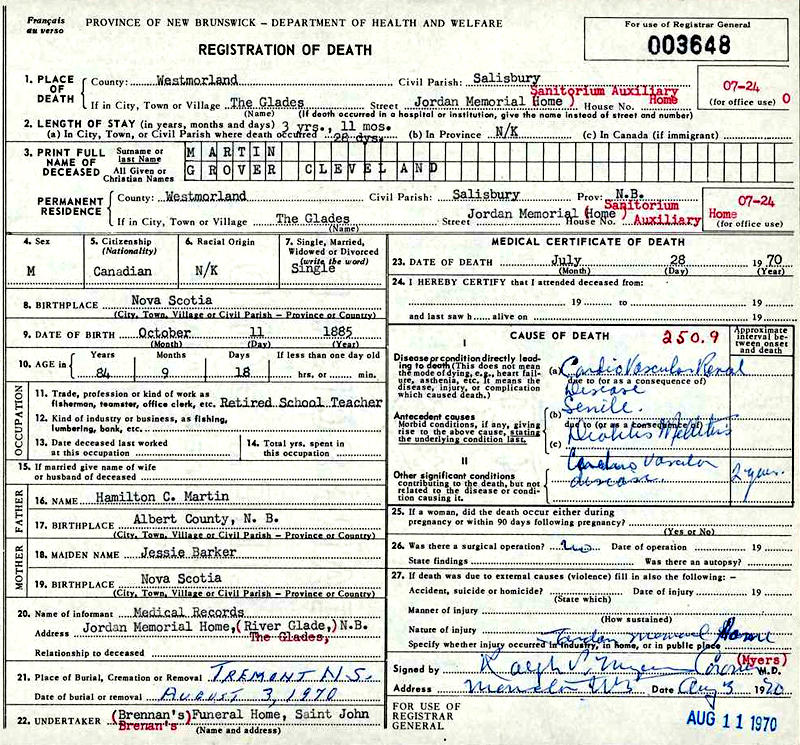 Français
au verso
PROVINCE OF NEW BRUNSWICK – DEPARTMENT OF HEALTH AND WELFARE
REGISTRATION OF DEATH
For use of Registrar General
003648
1. PLACE OF DEATH County: Westmorland Civil Parish: Salisbury
Sanitorium Auxiliary
If in City, Town or Village The Glades Street Jordan Memorial (Home) House No. Home
(Name) (If death occurred in a hospital or institution, give the name instead of street and number)
07-24
(for office use) 0
2. LENGTH OF STAY (in years, months and days) 3 yrs., 11 mos.
(a) In City, Town, or Civil Parish where death occurred 28 dys. (b) In Province N/K (c) In Canada (if immigrant)
3. PRINT FULL NAME OF DECEASED Surname or last Name MARTIN
All Given or Christian Names GROVER CLEVELAND
PERMANENT RESIDENCE County: Westmorland Civil Parish: Salisbury Prov: N.B.
Sanitorium
If in City, Town or Village The Glades Street Jordan Memorial (Home) House No. Auxiliary Home
(Name)
07-24
(for office use)
4. Sex
M
5. Citizenship
(Nationality)
Canadian
6. Racial Origin
N/K
7. Single, Married,
Widowed or Divorced
(write the word)
Single
8. BIRTHPLACE Nova Scotia
(City, Town, Village or Civil Parish – Province or Country)
9. DATE OF BIRTH October 11 1885
(Month) (Day) (Year)
10. AGE in Years Months Days If less than one day old
84 9 18 hrs. or min.
OCCUPATION
11. Trade, profession or kind of work as
fisherman, teamster, office clerk, etc. Retired School Teacher
12. Kind of industry or business, as fishing,
lumbering, bank, etc.
13. Date deceased last worked
at this occupation
14. Total yrs. spent in
this occupation
15. If married give name of wife
or husband of deceased
FATHER
16. NAME Hamilton C. Martin
17. BIRTHPLACE Albert County, N. B.
(City, Town, Village or Civil Parish – Province or Country)
MOTHER
18. MAIDEN NAME Jessie Barker
19. BIRTHPLACE Nova Scotia
(City, Town, Village or Civil Parish – Province or Country)
20. Name of informant Medical Records
Address Jordan Memorial Home, (River Glade,) N.B.
The Glades,
Relationship to deceased
21. Place of Burial, Cremation or Removal TREMONT N.S.
Date of burial or removal AUGUST 3, 1970
22. UNDERTAKER (Brennan's) Funeral Home, Saint John
Brenan's (Name and address)
MEDICAL CERTIFICATE OF DEATH
23. DATE OF DEATH July 28 1970
(Month) (Day) (Year)
24. I HEREBY CERTIFY that I attended deceased from:
19 to 19
and last saw h alive on 19
CAUSE OF DEATH 250.9
Approximate interval between onset and death
I
Disease or condition directly leading to death (This does not mean the mode of dying, e.g., heart failure, asthenia, etc. It means the disease, injury, or complication which caused death.)
(a) Cardio Vascular Renal
due to (or as a consequence of)
Disease
Antecedent causes
Morbid conditions, if any, giving rise to the above cause, stating the underlying condition last.
(b) Senile.
due to (or as a consequence of)
(c) Diabetes Mellitus
II
Other significant conditions contributing to the death, but not related to the disease or condition causing it.
Cerebro Vascular
disease
2 years
25. If a woman, did the death occur either during
pregnancy or within 90 days following pregnancy?
(Yes or No)
26. Was there a surgical operation? no Date of operation 19
State findings Was there an autopsy?
27. If death was due to external causes (violence) fill in also the following: –
Accident, suicide or homicide? Date of injury 19
(State which)
Manner of injury
(How sustained)
Nature of injury
Jordan Memorial Home
Specify whether injury occurred in industry, in home, or in public place
(Myers)
Signed by Ralph Myers Coroner M.D.
Address Moncton N.B. Date Aug 3 1970
FOR USE OF
REGISTRAR
GENERAL
AUG 11 1970